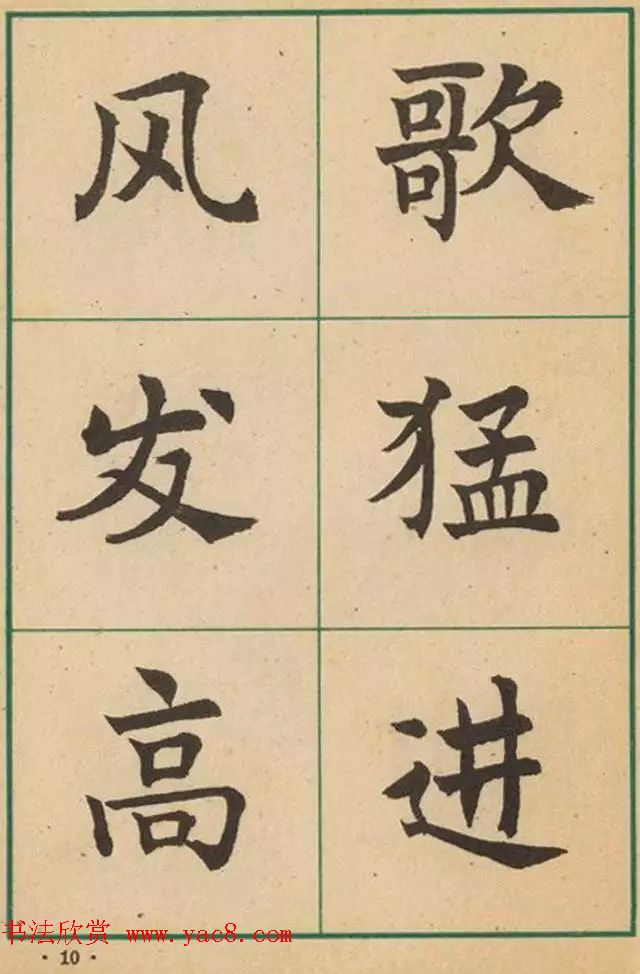 风发高
歌猛进
书法欣赏 www.yac8.com
·10·